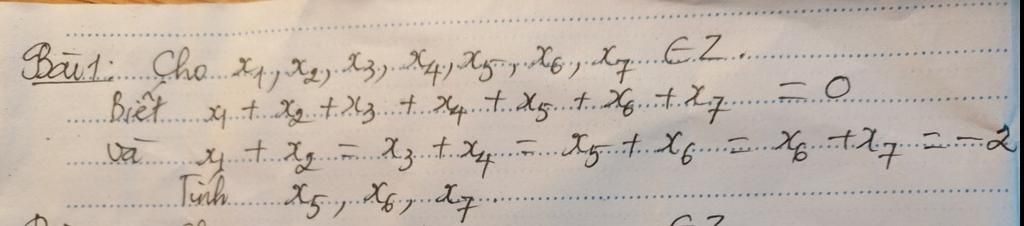 Bài 1: Cho x₁, x₂, x₃, x₄, x₅, x₆, x₇ ∈ Z.
Biết x₁ + x₂ + x₃ + x₄ + x₅ + x₆ + x₇ = 0
và x₁ + x₂ = x₃ + x₄ = x₅ + x₆ = x₆ + x₇ = -2
Tính x₅, x₆, x₇.
∈ Z